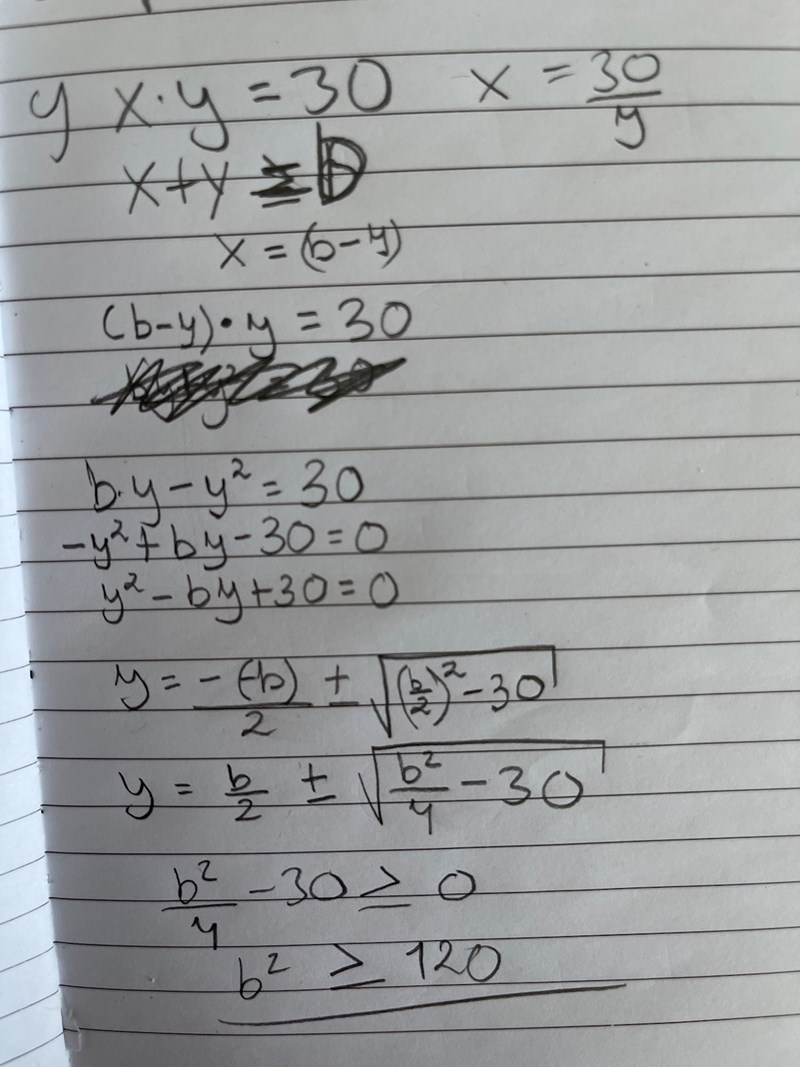 y x·y = 30 x = 30/y
x+y = b
x = (b-y)
(b-y)·y = 30
b·y - y² = 30
-y² + by - 30 = 0
y² - by + 30 = 0
y = -(-b)/2 ± √((b/2)² - 30)
y = b/2 ± √(b²/4 - 30)
b²/4 - 30 ≥ 0
b² ≥ 120